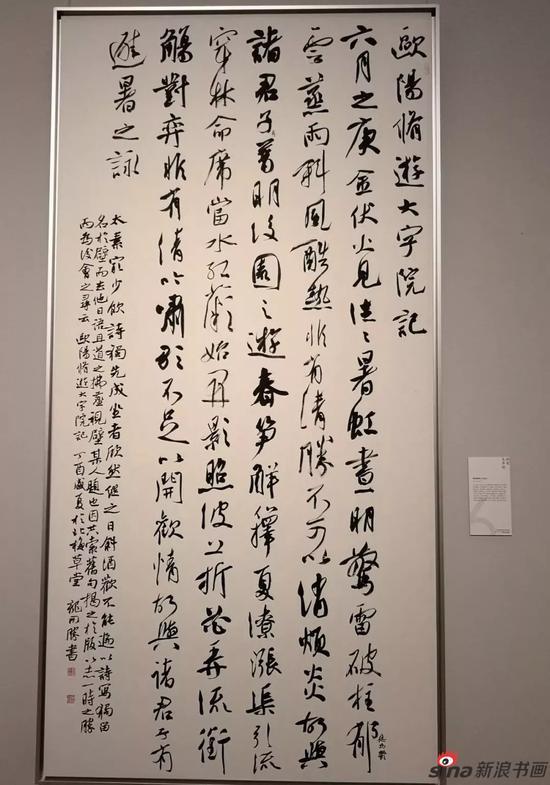 歐陽脩遊大字院記
六月之庚金伏火見往々暑虹晝明驚雷破柱郁
雲蒸雨斜風酷熱非有清勝不可以消煩炎故與
諸君子有普明後園之遊春笋解籜夏潦漲渠引流
穿林命席當水紅薇始開影照波上折花弄流銜
觴對弈非有清吟嘯歌不足以開歡情故與諸君子有
避暑之詠
太素最少飲詩獨先成坐者欣然繼之日斜酒歡不能遍以詩寫獨留
名於壁而去他日語且道之拂塵視壁某人題也因共索舊句揭之於版以志一時之勝
而為後會之尋云 歐陽脩遊大字院記 丁酉盛夏於 草堂 龍開勝書
sina新浪书画